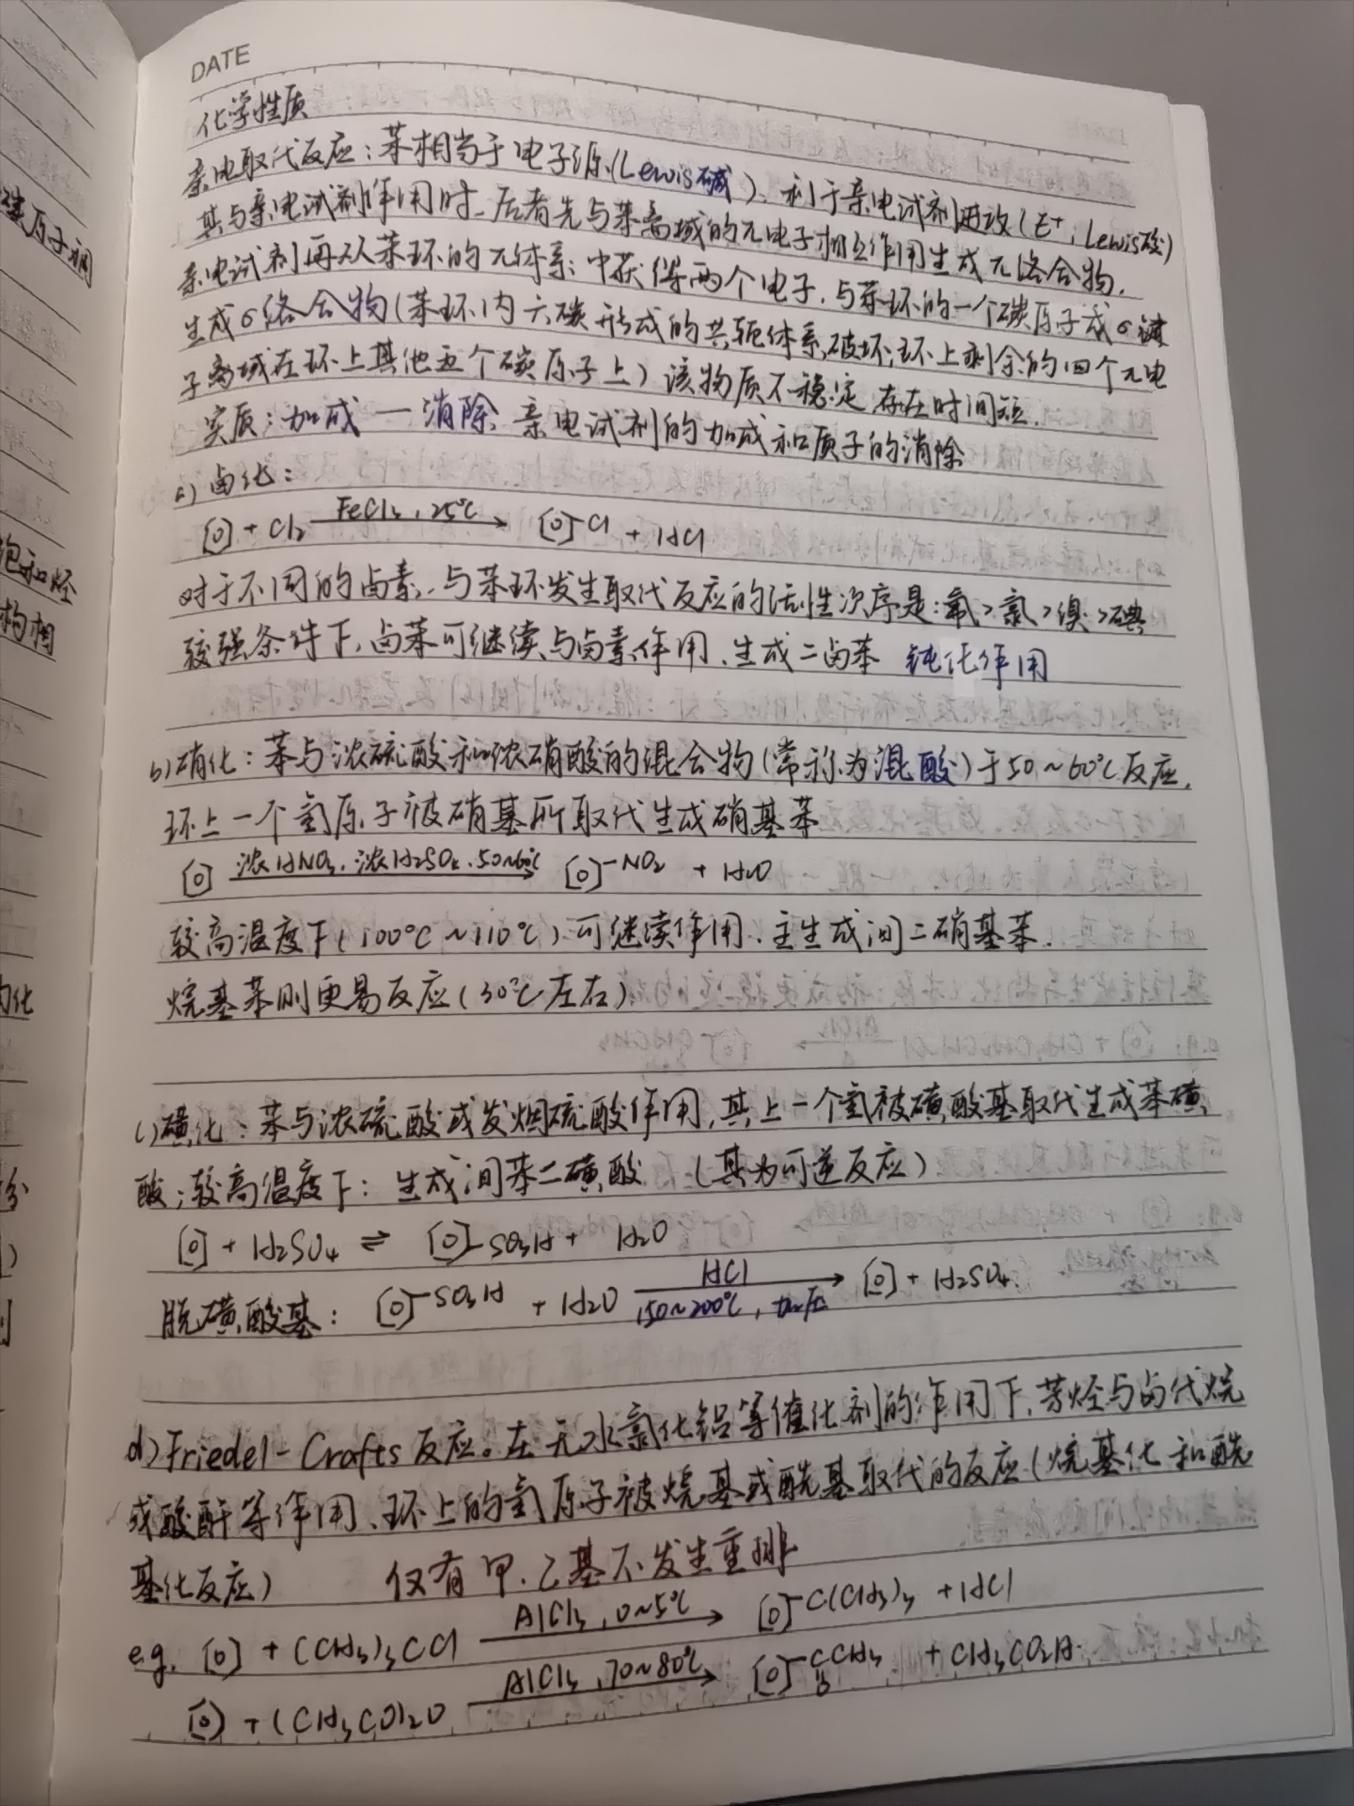 DATE
化学性质
亲电取代反应：苯相当于电子源(Lewis碱)，利于亲电试剂进攻(E⁺，Lewis酸)
其与亲电试剂作用时，后者先与苯离域的π电子相互作用生成π络合物，
亲电试剂再从苯环的π体系中获得两个电子，与苯环的一个碳原子成σ键
生成σ络合物(苯环内六碳形成的共轭体系破坏，环上剩余的四个π电
子离域在环上其他五个碳原子上)该物质不稳定，存在时间短.
实质：加成—消除 亲电试剂的加成和质子的消除
a) 卤化：
[o] + Cl₂ FeCl₃，25℃ → [o]-Cl + HCl
对于不同的卤素，与苯环发生取代反应的活性次序是：氟>氯>溴>碘
较强条件下，卤苯可继续与卤素作用，生成二卤苯 钝化作用
b)硝化：苯与浓硫酸和浓硝酸的混合物(常称为混酸)于50~60℃反应，
环上一个氢原子被硝基所取代生成硝基苯
[o] 浓HNO₃，浓H₂SO₄，50~60℃ → [o]-NO₂ + H₂O
较高温度下(100℃~110℃)可继续作用，主生成间二硝基苯.
烷基苯则更易反应(30℃左右)
c)磺化：苯与浓硫酸或发烟硫酸作用，其上一个氢被磺酸基取代生成苯磺
酸；较高温度下：生成间苯二磺酸 (其为可逆反应)
[o] + H₂SO₄ ⇌ [o]-SO₃H + H₂O
脱磺酸基：[o]-SO₃H + H₂O HCl → 150~200℃，加压 [o] + H₂SO₄.
d)Friedel-Crafts反应。在无水氯化铝等催化剂的作用下，芳烃与卤代烷
或酸酐等作用，环上的氢原子被烷基或酰基取代的反应(烷基化和酰
基化反应) 仅有甲、乙基不发生重排
e.g. [o] + (CH₃)₃CCl AlCl₃，0~5℃ → [o]-C(CH₃)₃ + HCl
[o] + (CH₃CO)₂O AlCl₃，70~80℃ → [o]-CCH₃ + CH₃CO₂H.
O
碳原子相
饱和烃
构相